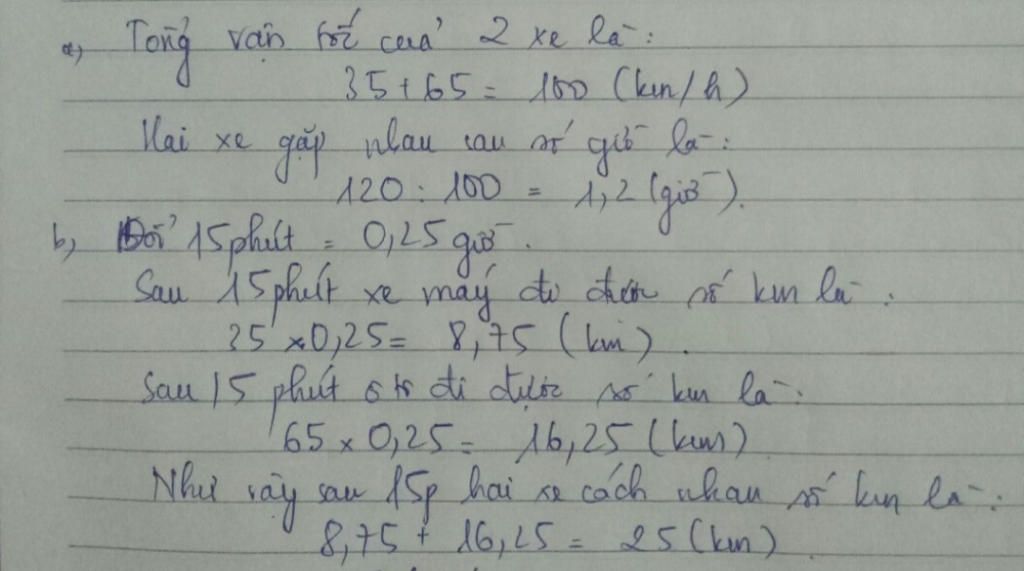 a) Tổng vận tốc của 2 xe là:
35 + 65 = 100 (km/h)
Hai xe gặp nhau sau số giờ là:
120 : 100 = 1,2 (giờ).
b) Đổi 15 phút = 0,25 giờ.
Sau 15 phút xe máy đi được số km là:
35 x 0,25 = 8,75 (km).
Sau 15 phút ô tô đi được số km là:
65 x 0,25 = 16,25 (km)
Như vậy sau 15p hai xe cách nhau số km là:
8,75 + 16,25 = 25 (km)